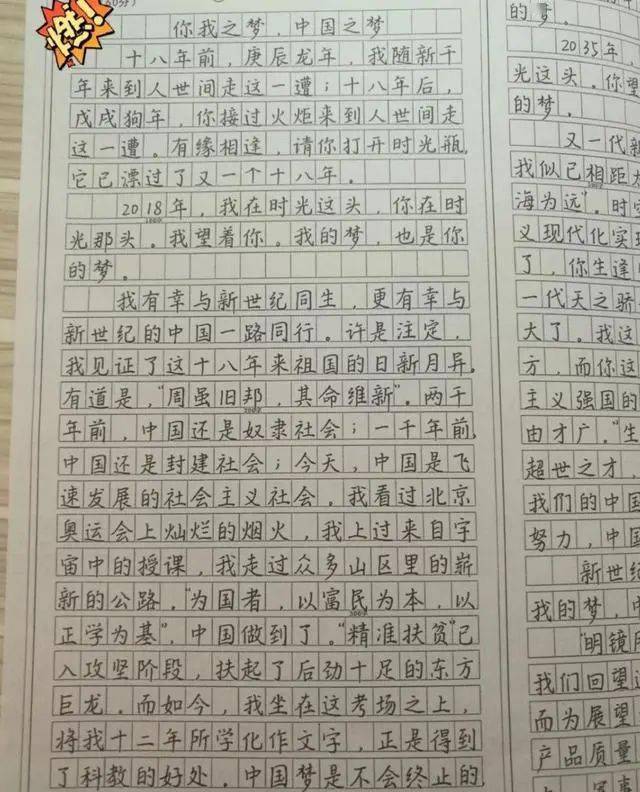 燃!
60分)
你我之梦，中国之梦
十八年前，庚辰龙年，我随新千
年来到人世间走这一遭；十八年后，
戊戌狗年，你接过火炬来到人世间走
这一遭。有缘相逢，请你打开时光瓶，
它已漂过了又一个十八年。
2018年，我在时光这头，你在时
光那头。我望着你。我的梦，也是你
的梦。
我有幸与新世纪同生，更有幸与
新世纪的中国一路同行。许是注定，
我见证了这十八年来祖国的日新月异。
有道是，“周虽旧邦，其命维新”。两千
年前，中国还是奴隶社会；一千年前，
中国还是封建社会；今天，中国是飞
速发展的社会主义社会。我看过北京
奥运会上灿烂的烟火，我上过来自宇
宙中的授课，我走过众多山区里的崭
新的公路。“为国者，以富民为本，以
正学为基”，中国做到了。“精准扶贫”已
入攻坚阶段，扶起了后劲十足的东方
巨龙。而如今，我坐在这考场之上，
将我十二年所学化作文字，正是得到
了科教的好处。中国梦是不会终止的，
的梦。
2035年，
光这头。你望
的梦。
又一代新
我似已相距大
海为远”。时空
义现代化实现
了，你生逢
一代天之骄
大了。我这
方，而你这
主义强国的
由才广。“生
超世之才，
我们的中国
努力，中国
新世纪
我的梦，中
“明镜所
我们回望这
而为展望
产品质量